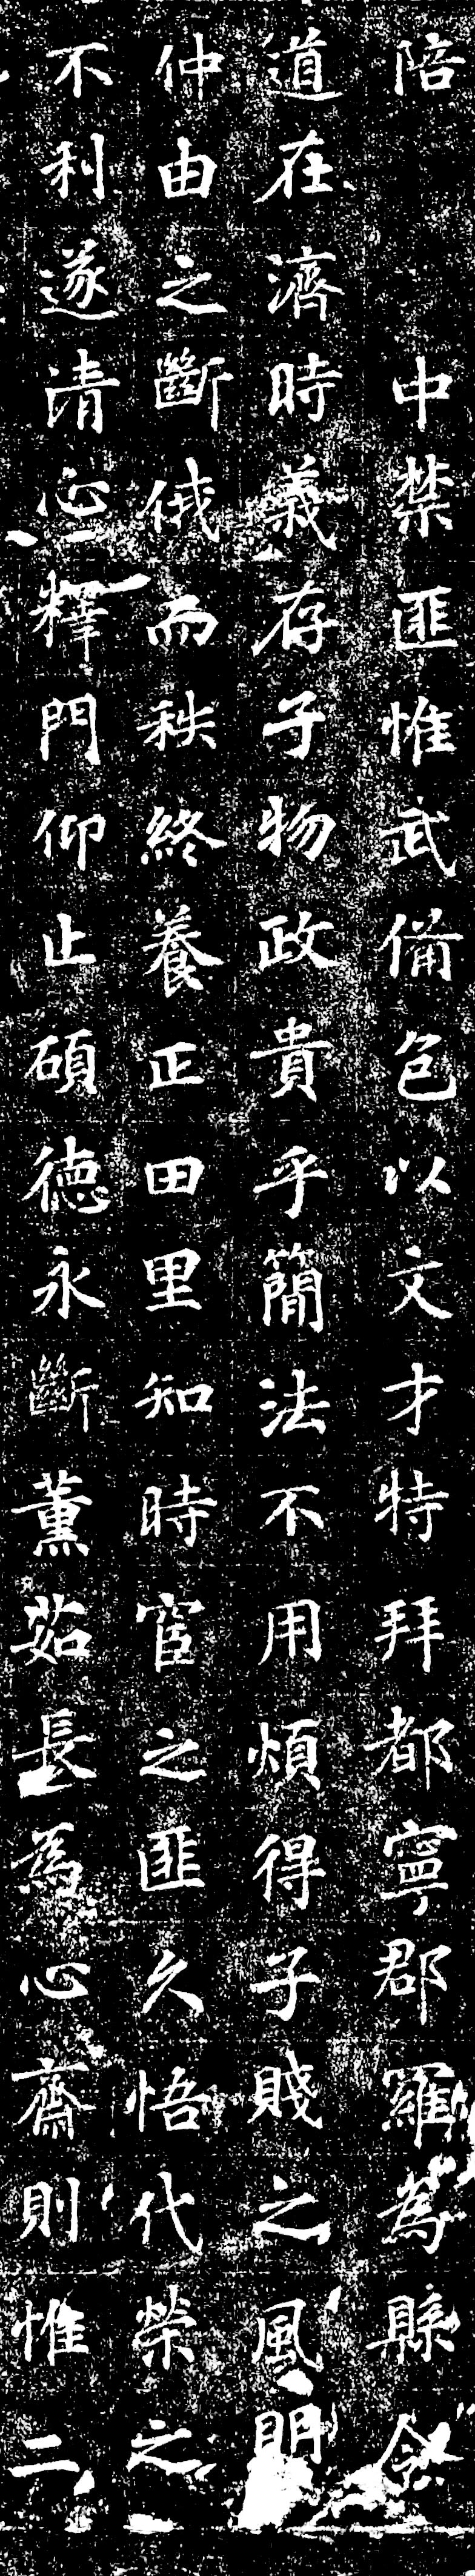 陪　中禁匪惟武備包以文才特拜都寧郡羅為縣令
道在濟時義存子物政貴乎簡法不用煩得子賤之風明
仲由之斷俄而秩終養正田里知時宦之匪久悟代榮之
不利遂清心釋門仰止碩德永斷薰茹長為心齋則惟二